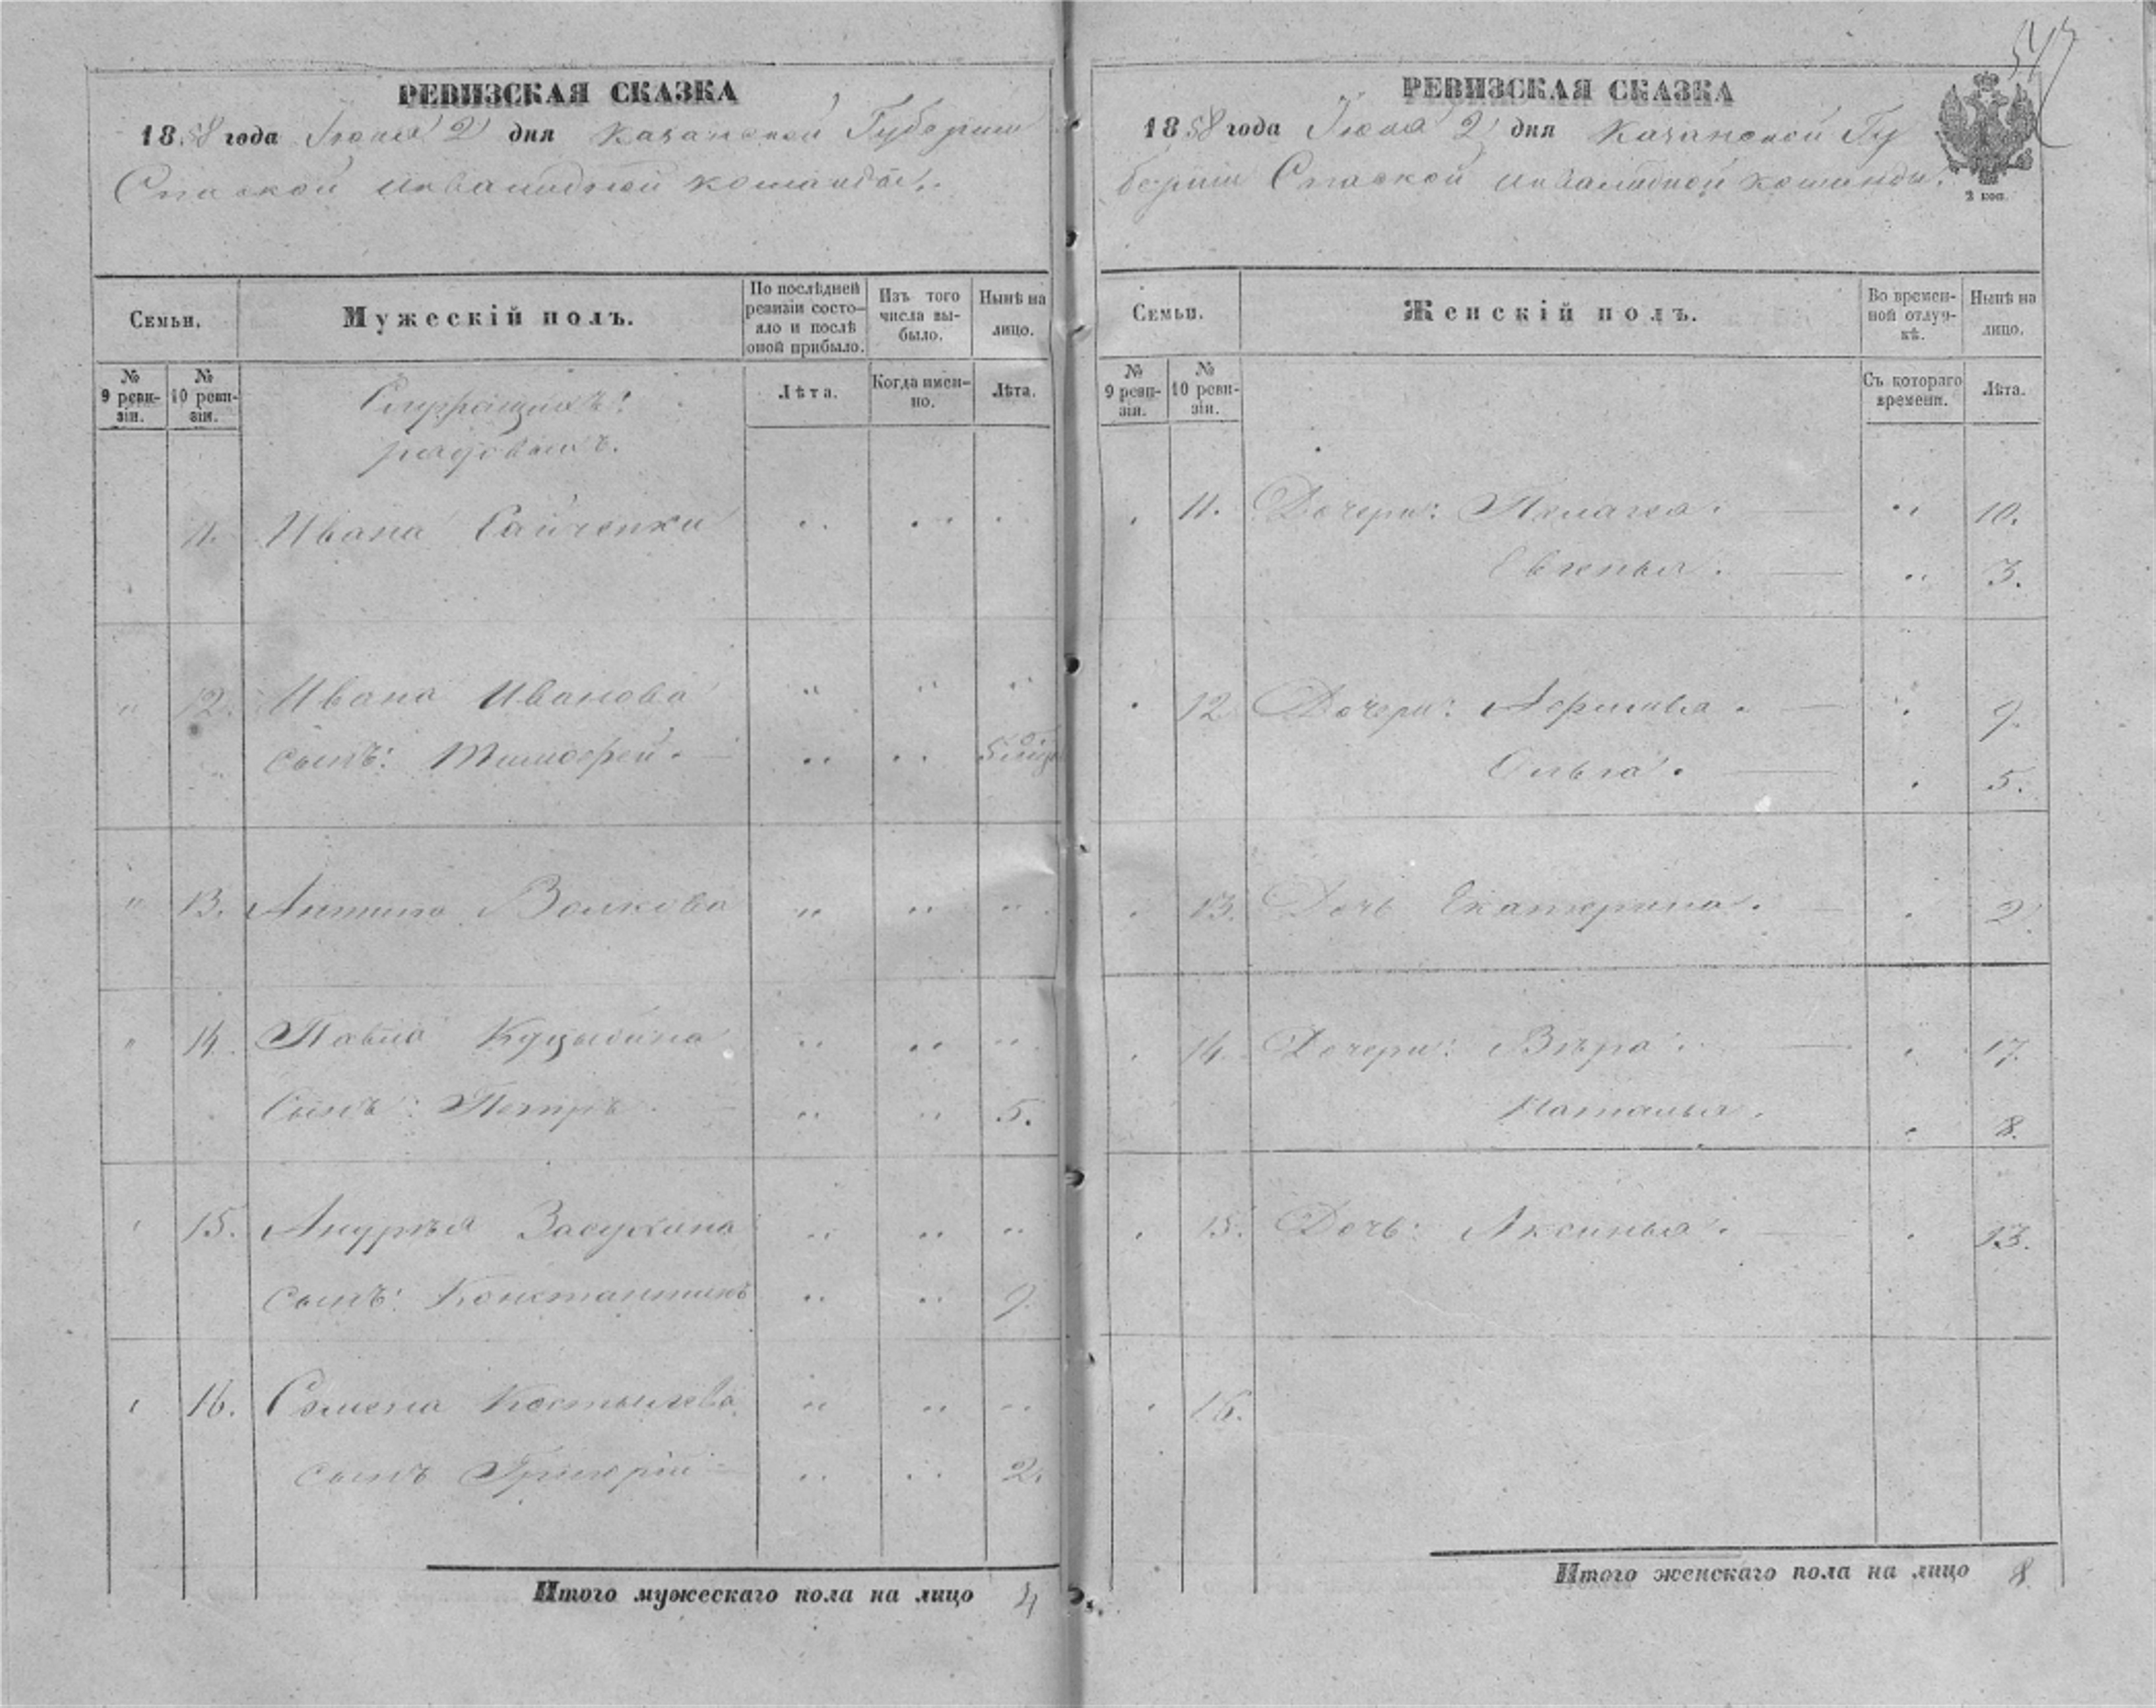 547
РЕВИЗСКАЯ СКАЗКА
1858 года Июня 2 дня Казанской Губернии
Спаской инвалидной команды.
Семьи.
Мужескій полъ.
По послѣдней ревизіи состояло и послѣ оной прибыло.
Изъ того числа выбыло.
Нынѣ на лицо.
№ 9 ревизіи.
№ 10 ревизіи.
Лѣта.
Когда именно.
Лѣта.
Служащихъ:
рядовыхъ.
11. Ивана
12. Ивана Иванова
Сынъ: Тимофей.
13. Волкова
14. Павла
Сынъ: Петръ. 5.
15. Андрея Засухина
Сынъ: Константинъ 9.
16. Семена Костылева
сынъ Григорій 2.
Итого мужескаго пола на лицо 4
РЕВИЗСКАЯ СКАЗКА
1858 года Июня 2 дня Казанской Гу
берніи Спаской инвалидной команды.
2 коп.
Семьи.
Женскій полъ.
Во временной отлучкѣ.
Нынѣ на лицо.
№ 9 ревизіи.
№ 10 ревизіи.
Съ котораго времени.
Лѣта.
11. Дочери: Пелагея. 10.
Евгенья. 3.
12 Дочери: 9.
Ольга. 5.
13. Дочь Екатерина. 2.
14. Дочери: Вѣра. 17.
Наталья. 8.
15. Дочь: Аксинья. 13.
16.
Итого женскаго пола на лицо 8